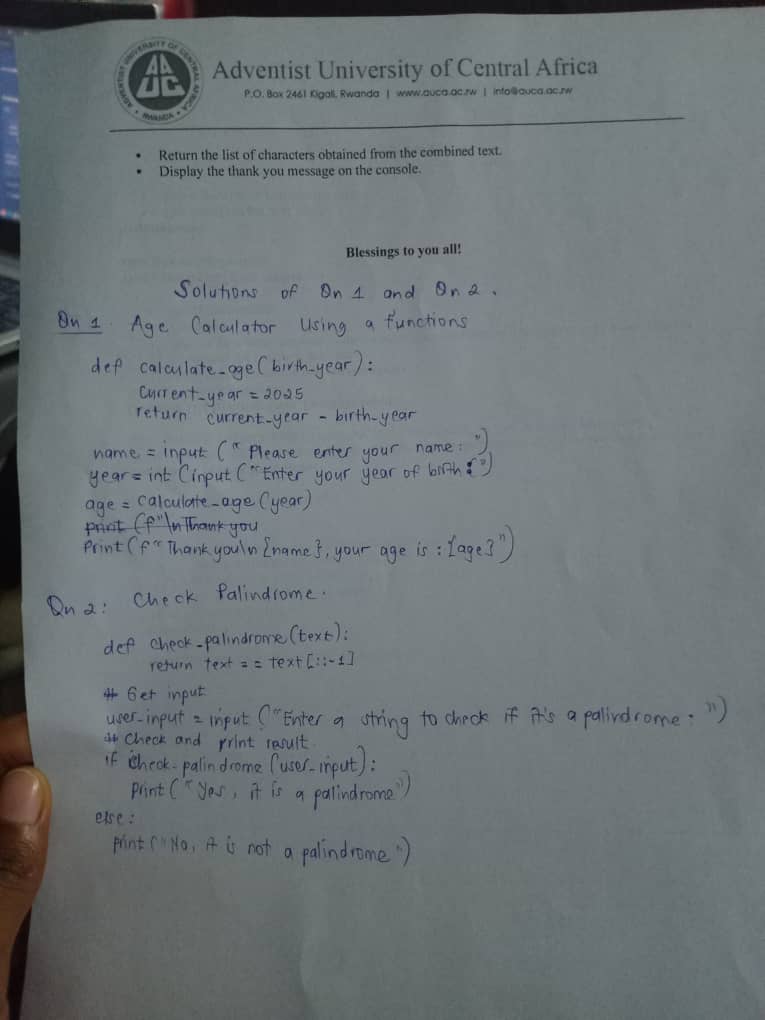 ADVENTIST UNIVERSITY OF CENTRAL AFRICA
AUCA
• RWANDA •
Adventist University of Central Africa
P.O. Box 2461 Kigali, Rwanda | www.auca.ac.rw | info@auca.ac.rw
• Return the list of characters obtained from the combined text.
• Display the thank you message on the console.
Blessings to you all!
Solutions of Qn 1 and Qn 2.
Qn 1. Age Calculator Using a functions
def calculate_age(birth_year):
Current_year = 2025
return current_year - birth_year
name = input ("Please enter your name: ")
year = int (input ("Enter your year of birth: ")
age = calculate_age(year)
print (f"\n Thank you
Print (f"Thank you\n {name}, your age is : {age}")
Qn 2: Check Palindrome.
def check_palindrome(text):
return text == text[::-1]
# Get input
user_input = input ("Enter a string to check if it's a palindrome: ")
# Check and print result.
if check_palindrome(user_input):
Print ("Yes, it is a palindrome")
else:
print ("No, it is not a palindrome")